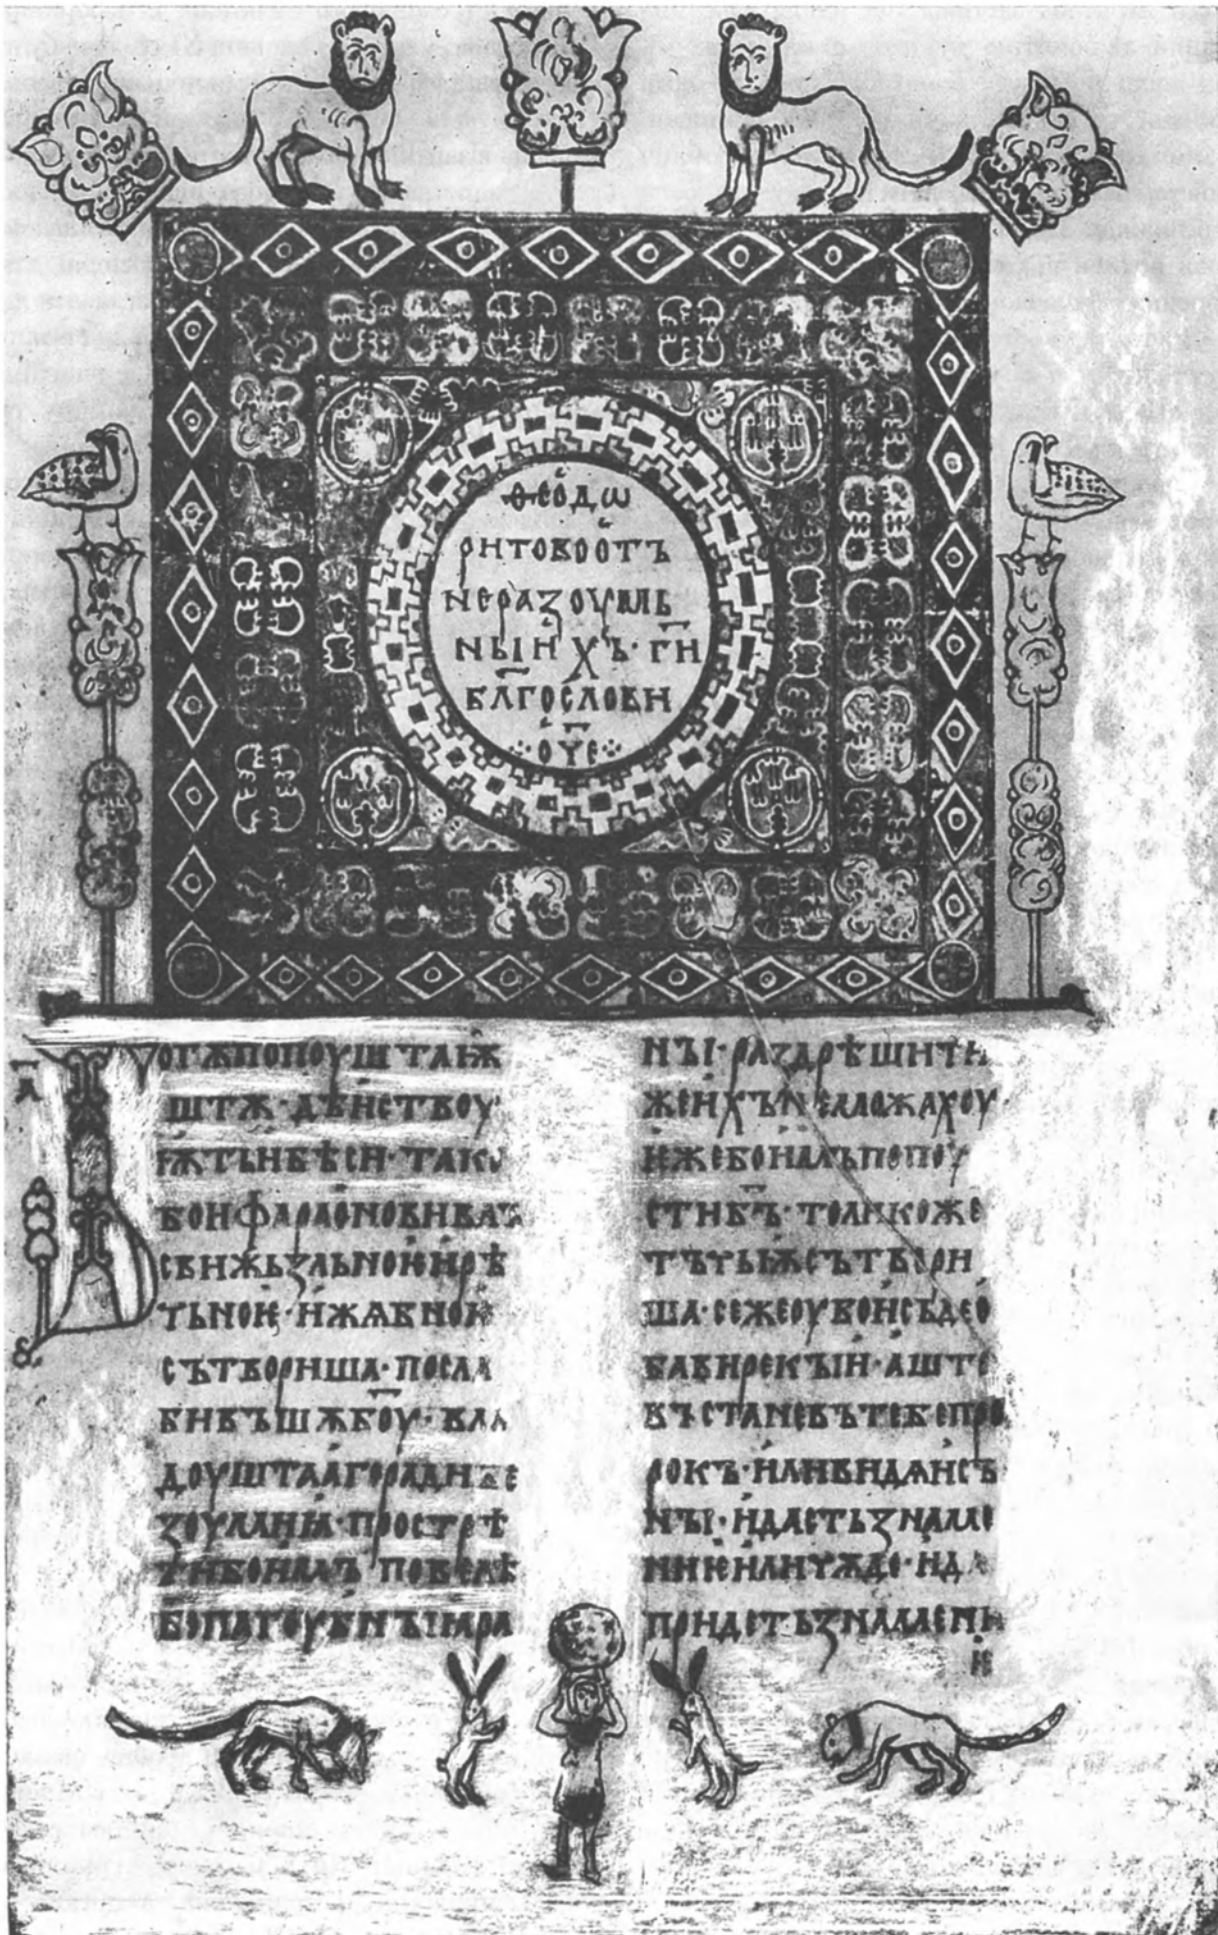 ѲЕОДѠ
РИТОВООТЪ
НЕРАЗОУМЬ
НЫИХЪ· ГИ
БЛГОСЛОВИ
ОЧЕ
А
БОГЪ ПОПОУШТАѬ
ШТѪ· ДѢИСТВОУ
ѬТЪ И БѢСИ· ТАКО
БО И ФАРАОНОВИ ВЛЪ
СВИ ЖЬЗЛЬНОѤ И РѢ
ЧЬНОѤ· И ЖАБНОѤ
СЪТВОРИША· ПОСЛА
БИВЪШѪ БОУ· ВЛА
ДОУШТААГО РАДИ БЕ
ЗОУМИꙖ· ПРОСТРѢ
ТИ БО ИМЪ ПОВЕЛѢ
БО ПАГОУБИЪІ
НЪІ· РАЗДРѢШИТИ
ЖЕ ИХЪ НЕ МОЖАХОУ·
НЕ ЖЕ БО ИМЪ ПОПОУ
СТИ БЪ· ТОЛИКО ЖЕ
ТЪЧЬѬ СЪТВОРИ
ША· СЕ ЖЕ ОУБО И СЪ ДЕО
БАВИ РЕКЪІИ· АШТЕ
ВЪСТАНЕ ВЪ ТЕБЕ ПРО
РОКЪ· ИЛИ ВИДѦИ СЪ
НЪІ· И ДАСТЬ ЗНАМЕ
НИѤ ИЛИ ЧЮДО· И ДА
ПРИДЕТЬ ЗНАМЕНИ
Ѥ